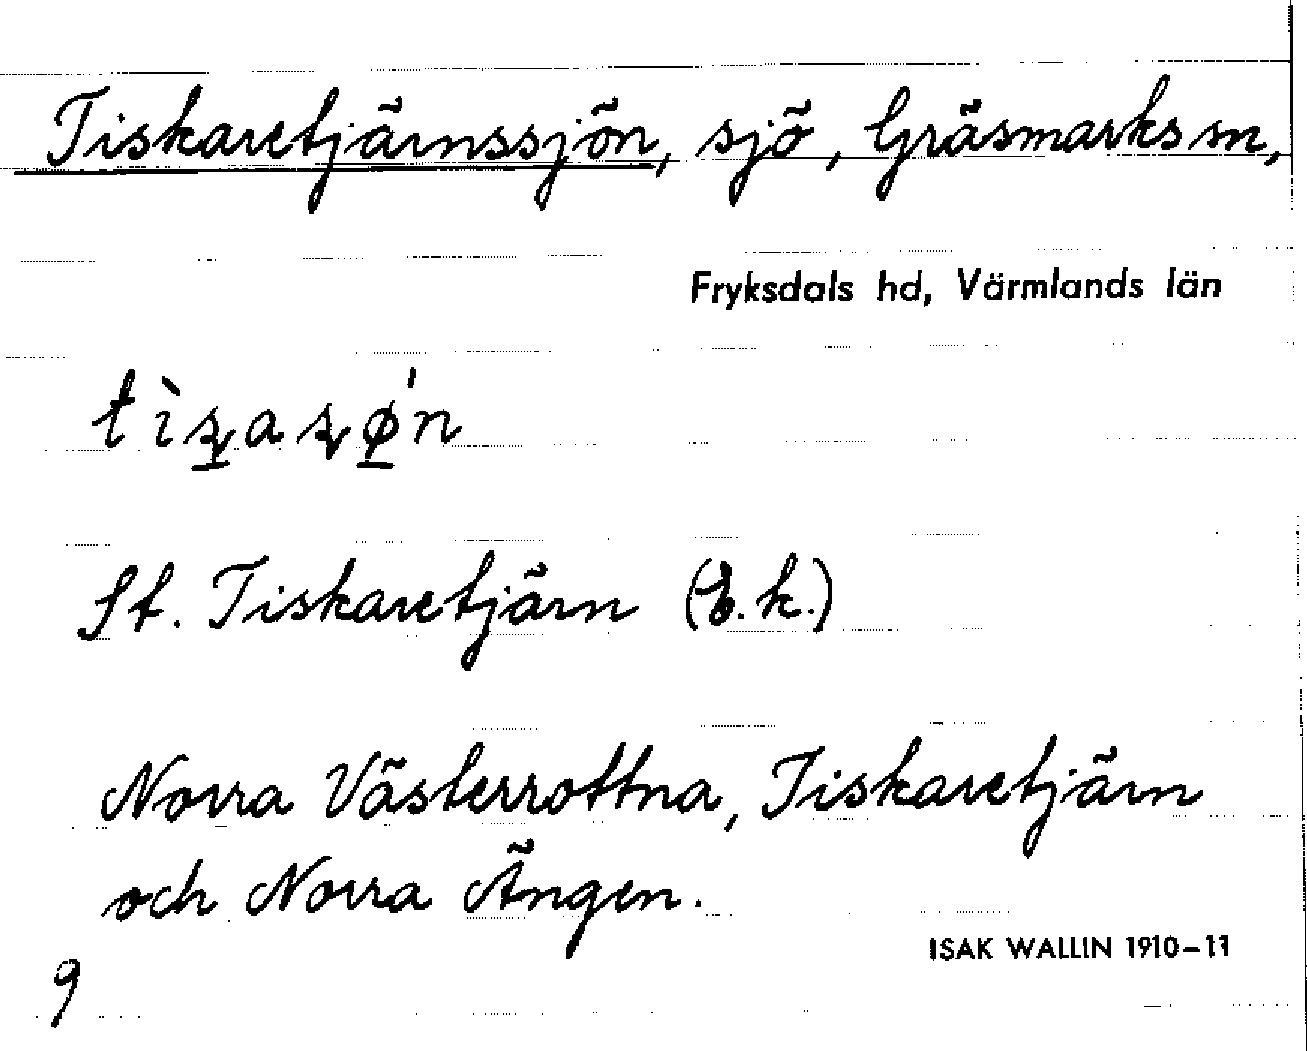 Tiskaretjärnssjön, sjö, Gräsmarks sn,
Fryksdals hd, Värmlands län
tìʂaʂø̱'n
St. Tiskaretjärn (E.k.)
Norra Västerrottna, Tiskaretjärn
och Norra Ängen.
ISAK WALLIN 1910–11
9